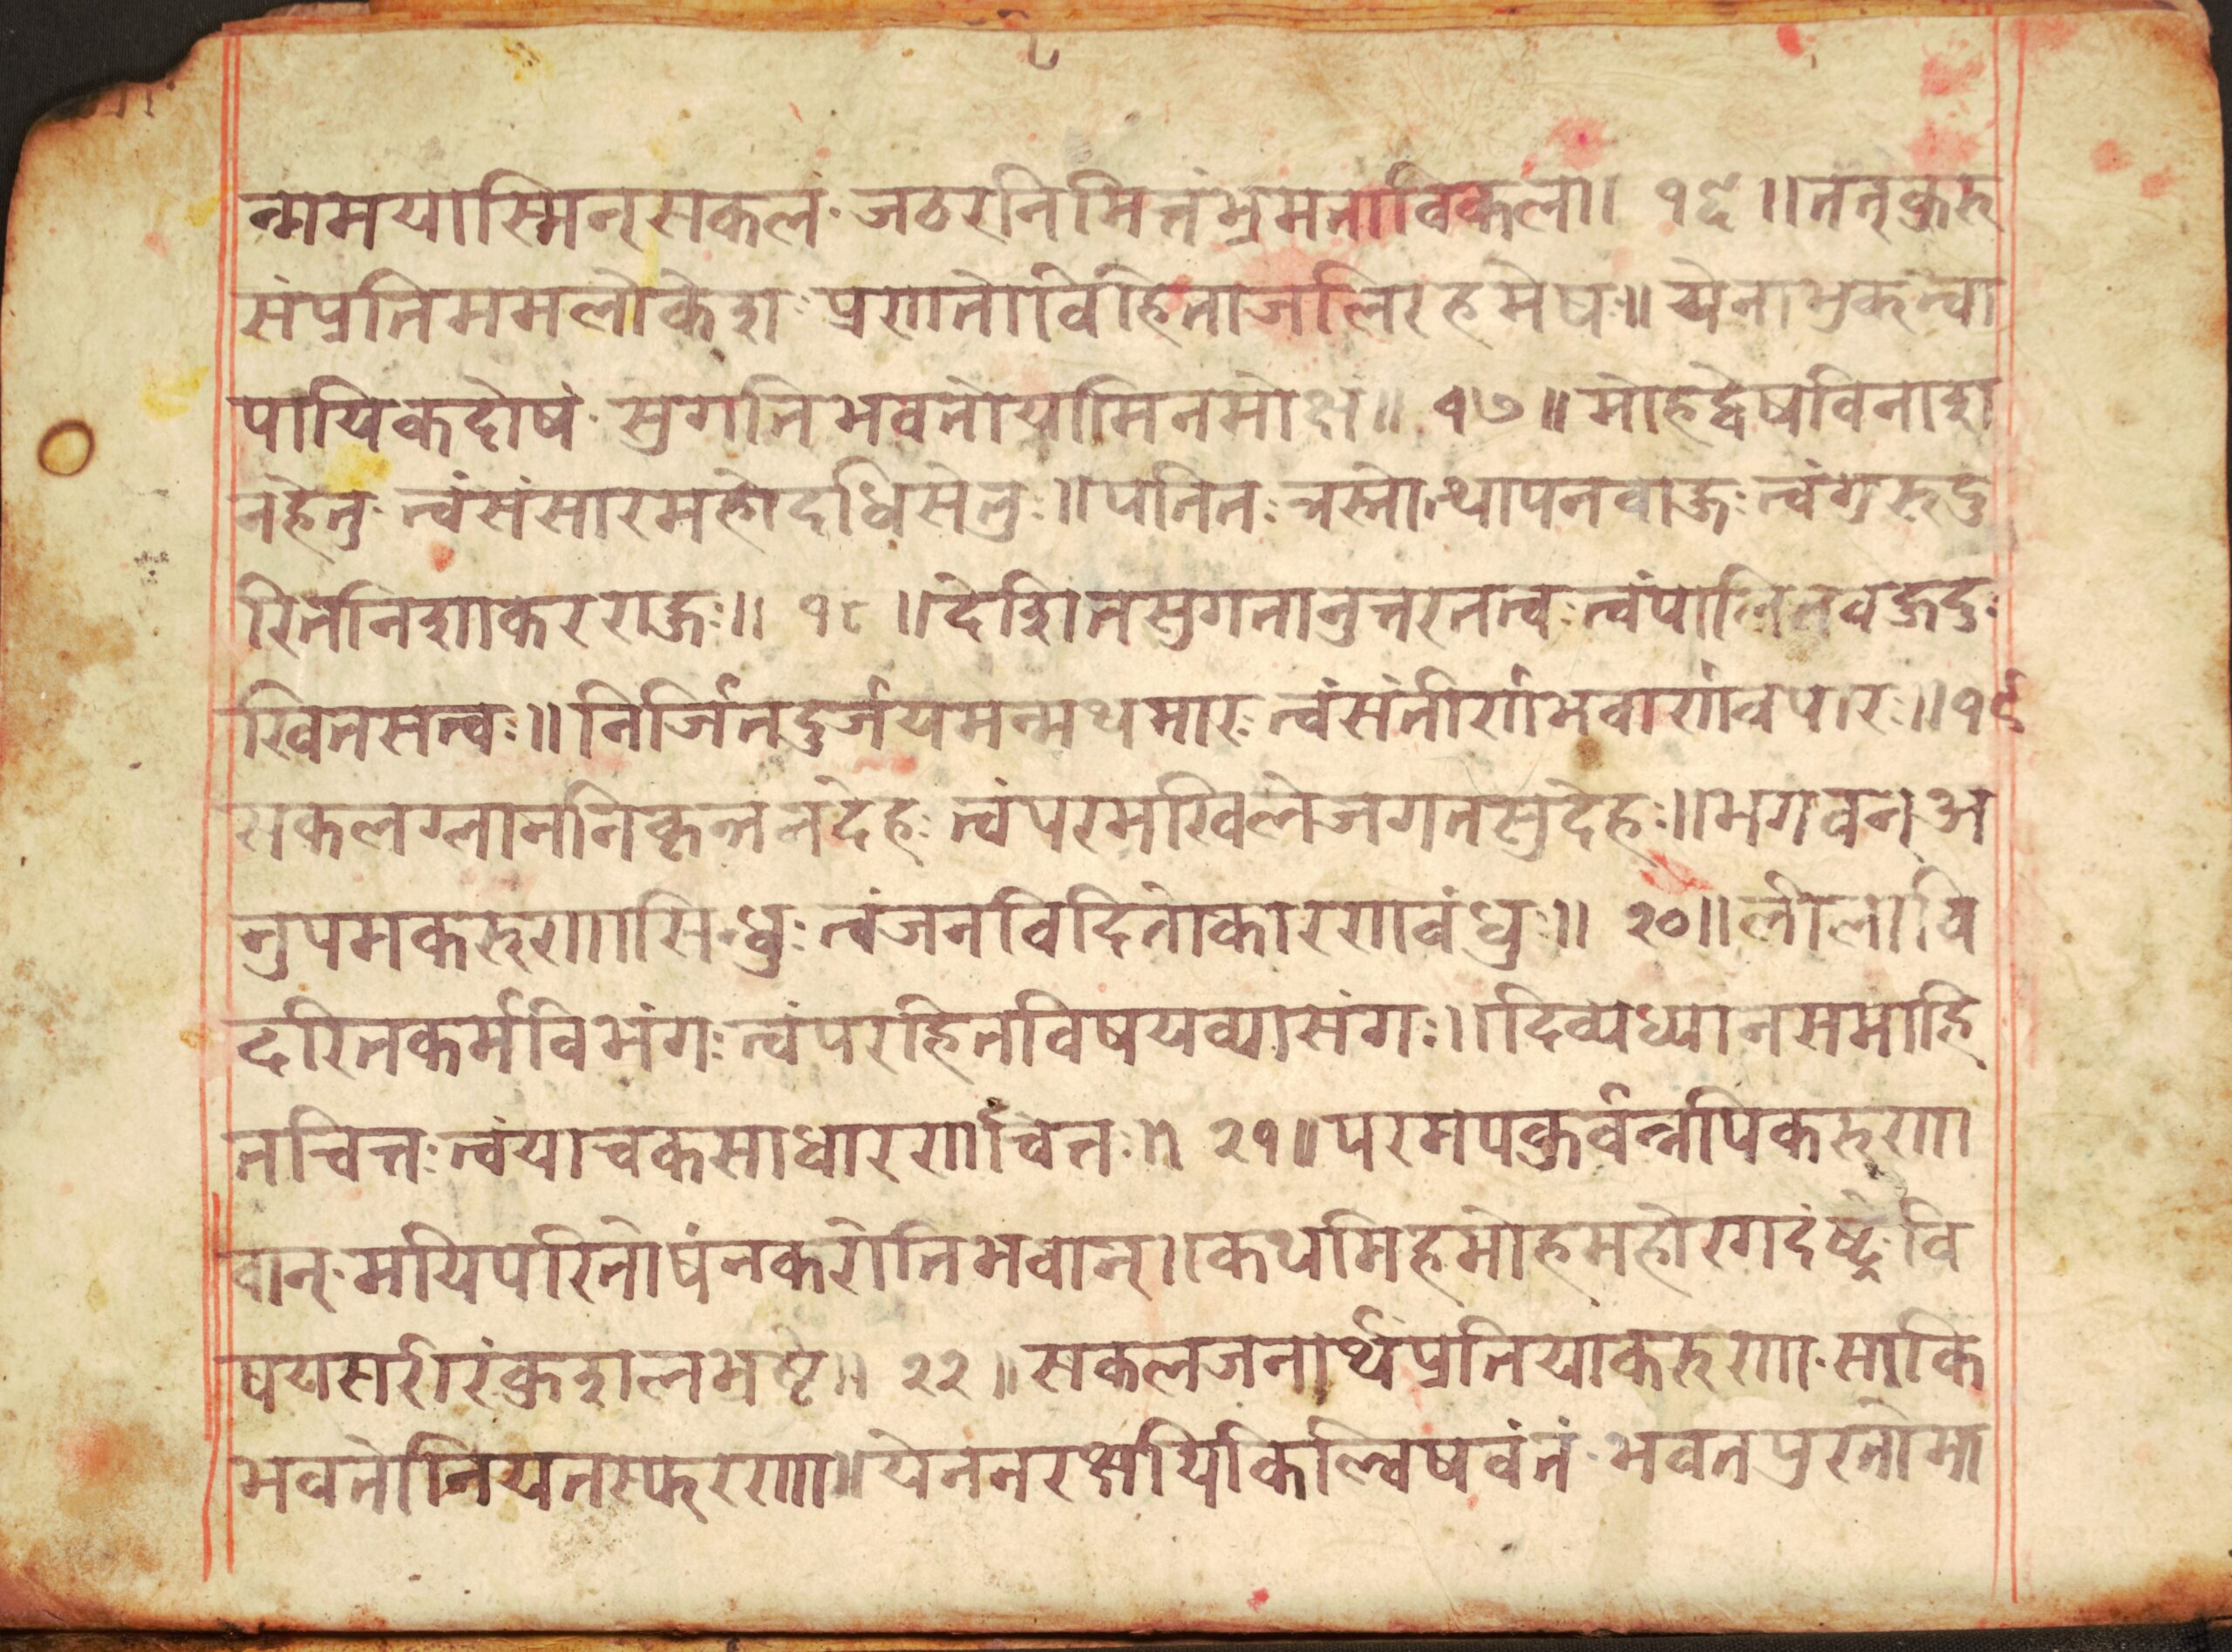 न्मामयास्मिन्सकलं॰जठरनिमित्तंभ्रमताविकला। १६॥तत्कुरु
संप्रतिममलोकेशः॰प्रणतोविहिताजलिरहमेषः॥ येनाभ्रकत्वा
पायिकदोषं॰सुगतिभवतोयामिनमोक्षं॥ १७॥मोहद्वेषविनाश
नहेतु॰त्वंसंसारमहोदधिसेतुः॥पतित॰त्रस्तोत्थापनवाजः॰त्वंगुरुदु
रितनिशाकरराजः॥ १८॥देशितसुगतानुत्तरतत्वः॰त्वंपालितवजदुः
खितसत्वः॥निर्जितदुर्जयमन्मथमारः॰त्वंसंतीर्णभवार्णवपारः॥१९
सकलग्लाननिकृन्तनदेहः॰त्वंपरमखिलेजगतसुदेहः॥भगवन्अ
नुपमकरुणासिन्धुः॰त्वंजनविदितोकारणवंधुः॥ २०॥लीलावि
दरितकर्मविभंगः॰त्वंपरहितविषयव्यासंगः॥दिव्यध्यानसमाहि
तचित्तः॰त्वंयाचकसाधारणचित्तः॥ २१॥परमपकुर्वन्नपिकरुणा
वान्॰मयिपरितोषंनकरोतिभवान्॥कथमिहमोहमहोरगदंष्ट्रः॰वि
षयसरीरंकुशलभ्रष्टे॥ २२॥सकलजनार्थंप्रतियाकरुणा॰साकिं
भवतोनियतस्फुरणा॥येननरक्षयिकिल्विषवंतं॰भवतप्रुरतोमा